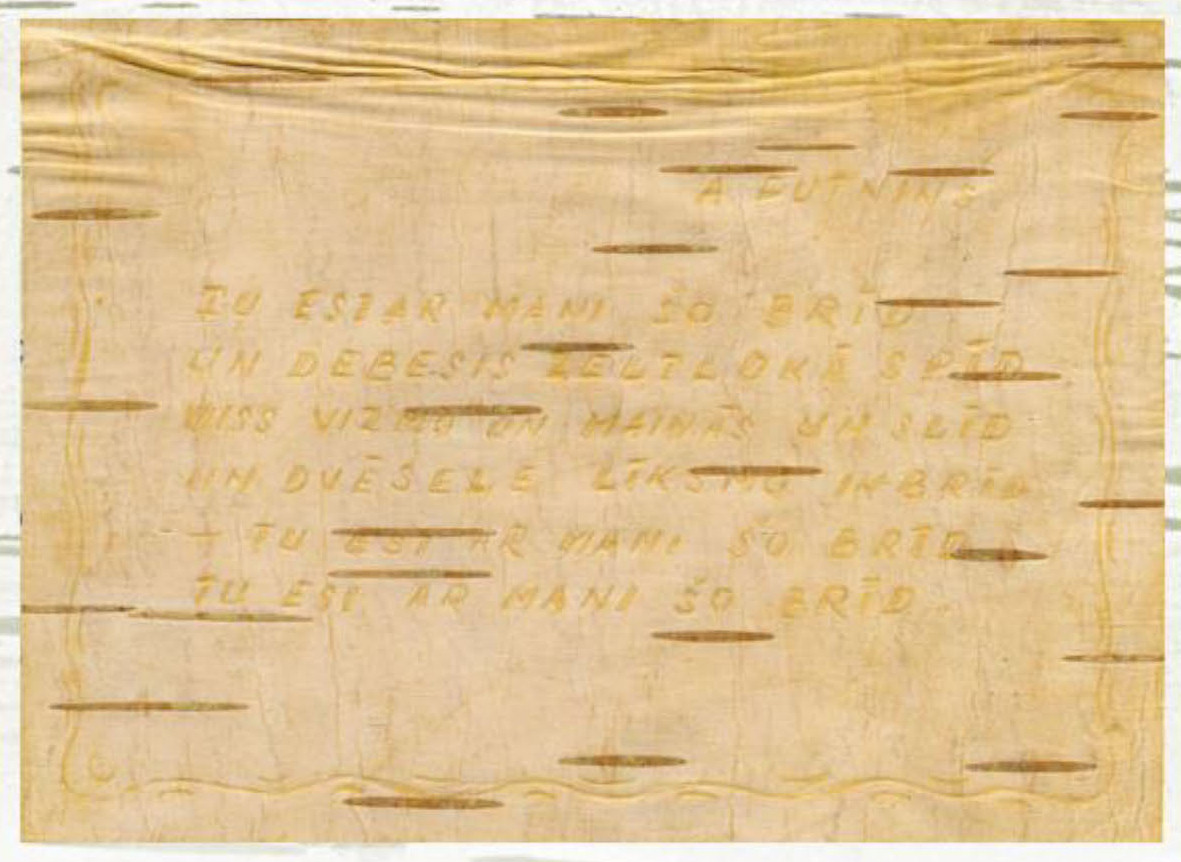 A
TU ESI AR MANI ŠO BRĪD
UN DEBESIS ZELTLOKĀ SPĪD
VISS VIZMO UN MAINĀS UN SLĪD
UN DVĒSELE LĪKSMO
– TU ESI AR MANI ŠO BRĪD
TU ESI AR MANI ŠO BRĪD.